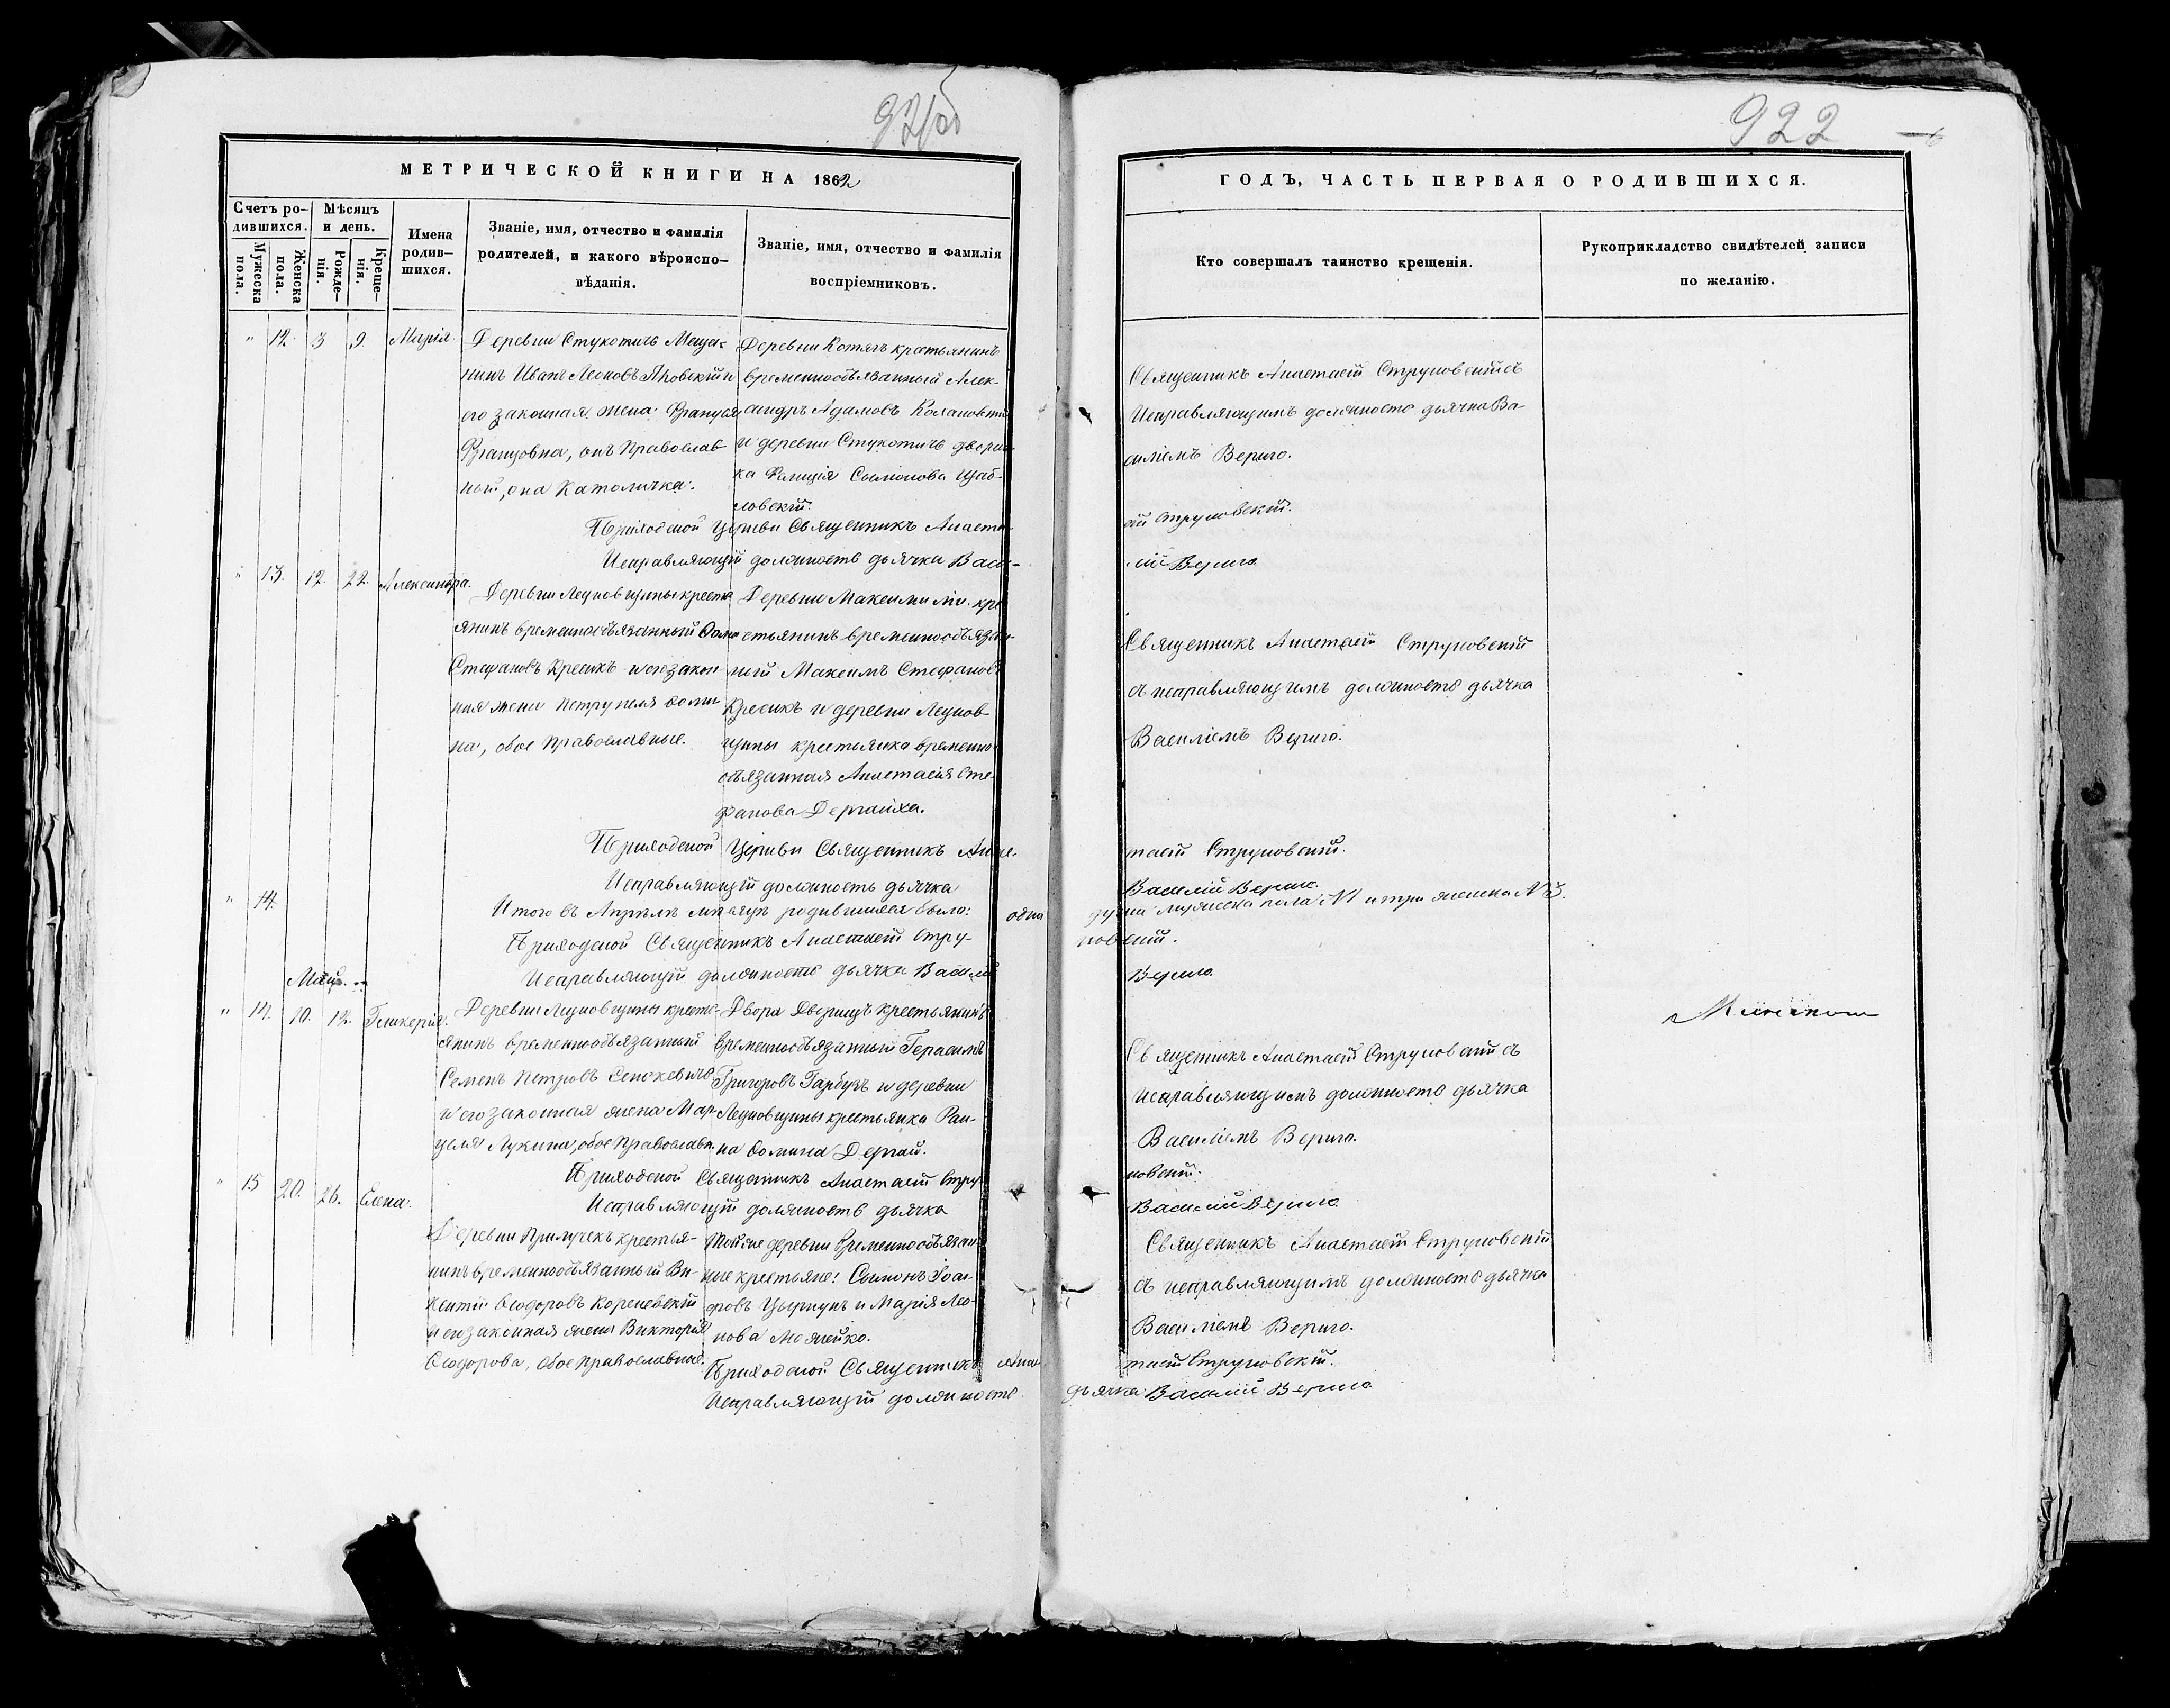 922
МЕТРИЧЕСКОЙ КНИГИ НА 1862
ГОДЪ, ЧАСТЬ ПЕРВАЯ О РОДИВШИХСЯ.
Счетъ ро-
дившихся.
Мужеска
пола.
Женска
пола.
Мѣсяцъ
и день.
Рожде-
нія.
Креще-
нія.
Имена
родив-
шихся.
Званіе, имя, отчество и фамилія
родителей, и какого вѣроиспо-
вѣданія.
Званіе, имя, отчество и фамилія
воспріемниковъ.
Кто совершалъ таинство крещенія.
Рукоприкладство свидѣтелей записи
по желанію.
" 12. 3 9. Марія.
Деревни Стукотичъ Меща-
нинъ Иванъ Леоновъ и
его законная жена
она Католичка.
Деревни крестьянинъ
временнообязанный Алек-
сандръ Адамовъ
и деревни Стукотичь дворян-
ка
ловскій.
Священникъ Анастасій Струковскій съ
Исправляющимъ должность дьячка Ва-
силіемъ Верıго.
Приходской Церкви Священникъ Анаста-
сій Струковскій.
Исправляющій должность дьячка Васи-
лій Верıго
" 13. 12. 22. Александра.
Деревни кресть-
янинъ временнообязанный
Стефановъ Кресикъ и его закон
ная жена Петрунеля
на, обое православные.
Деревни кре
стьянинъ временнообязан-
ный Максимъ Стефановъ
Кресикъ и деревни
щины крестьянка временно
обязанная Анастасія Сте-
фанова
Священникъ Анастасій Струковскій
съ исправляющимъ должность дьячка
Василіемъ Верıго.
Приходской Церкви Священникъ Анас-
тасій Струковскій.
Исправляющій должность дьячка
Василій Верıго.
" 14.
Итого въ Апрѣлѣ мѣсяцѣ родившихся было: одна
душа мужеска пола №1 и три женска №3.
Приходской Священникъ Анастасій Стру-
ковскій.
Исправляющій должность дьячка Василій
Верıго
Май.
" 14. 10. 12. Гликерія.
Деревни кресть-
янинъ временнообязанный
Семенъ Петровъ Сенкевичъ
и его законная жена Мар-
целя Лукина, обое православн.
Двора Дворищъ Крестьянинъ
временнообязанный Герасимъ
Григоровъ Гарбузъ и деревни
крестьянка Раи-
на Фомина Дергай.
Священникъ Анастасій Струковскій съ
Исправляющимъ должность дьячка
Василіемъ Верıго.
Приходской Священникъ Анастасій Стру-
ковскій.
Исправляющій должность дьячка
Василій Верıго
" 15 20. 26. Елена.
Деревни Прилучекъ крестья-
нинъ временнообязанный Ви-
кентій Ѳеодоровъ Кореневскій
и его законная жена Викторія
Ѳеодорова, обое православные.
Той же деревни Временнообязан-
ные крестьяне: Сымонъ
и Марія Лео-
нова Можейко.
Священникъ Анастасій Струковскій
съ исправляющимъ должность дьячка
Василіемъ Верıго.
Приходской Священникъ Анас-
тасій Струковскій.
Исправляющій должность дьячка Василій Верıго